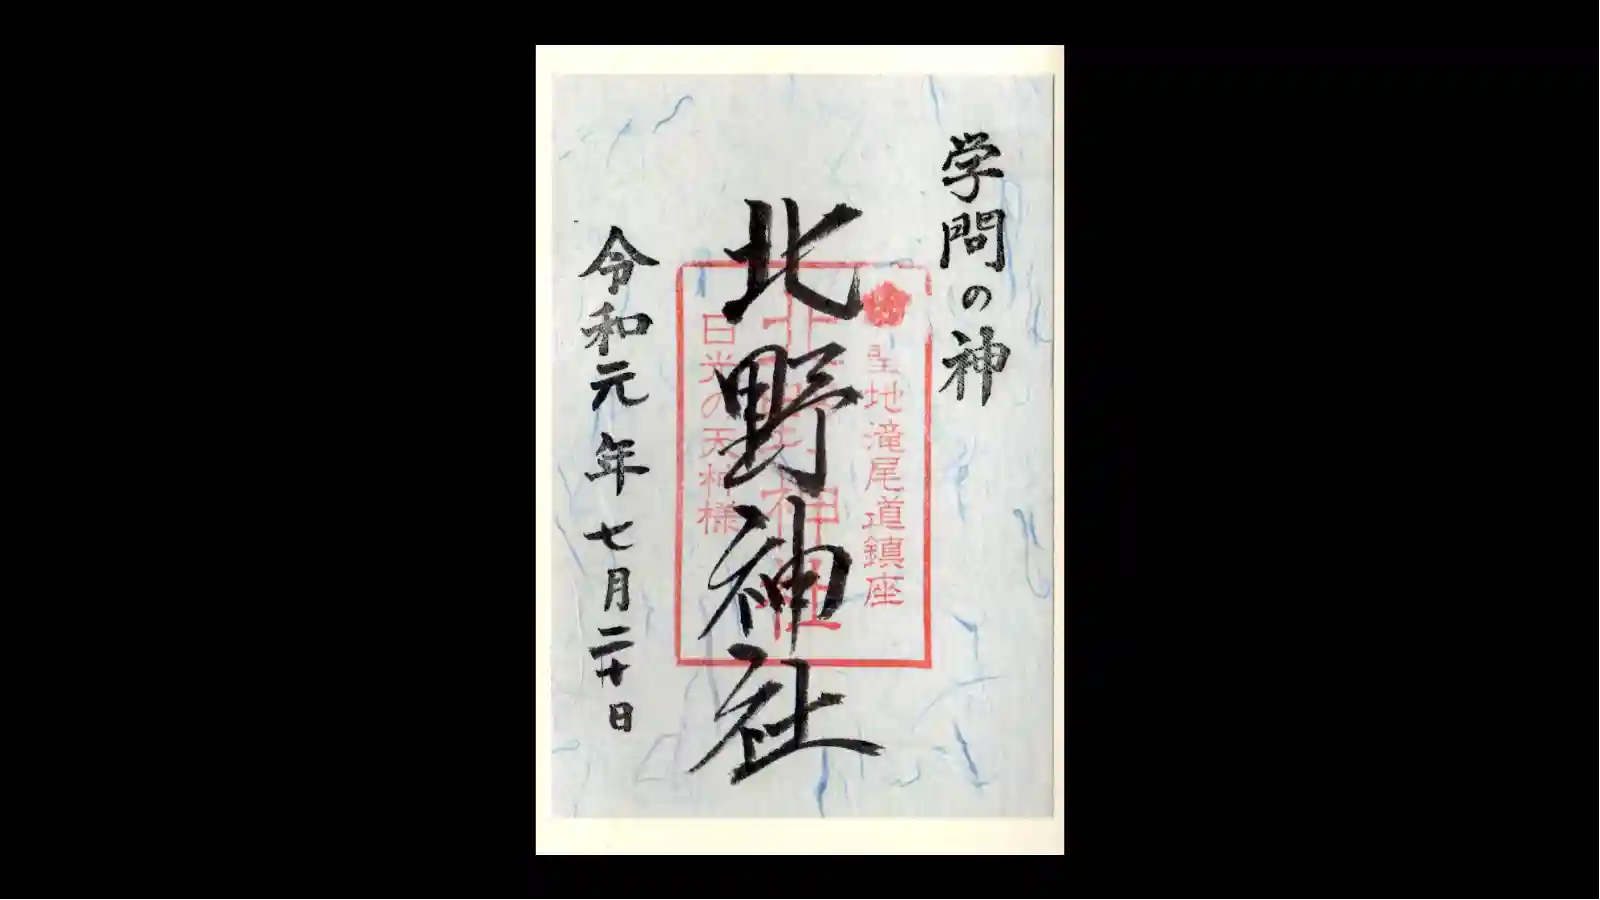 学問の神
聖地滝尾道鎮座
北野神社
北野神社
日光の天神様
令和元年七月二十日